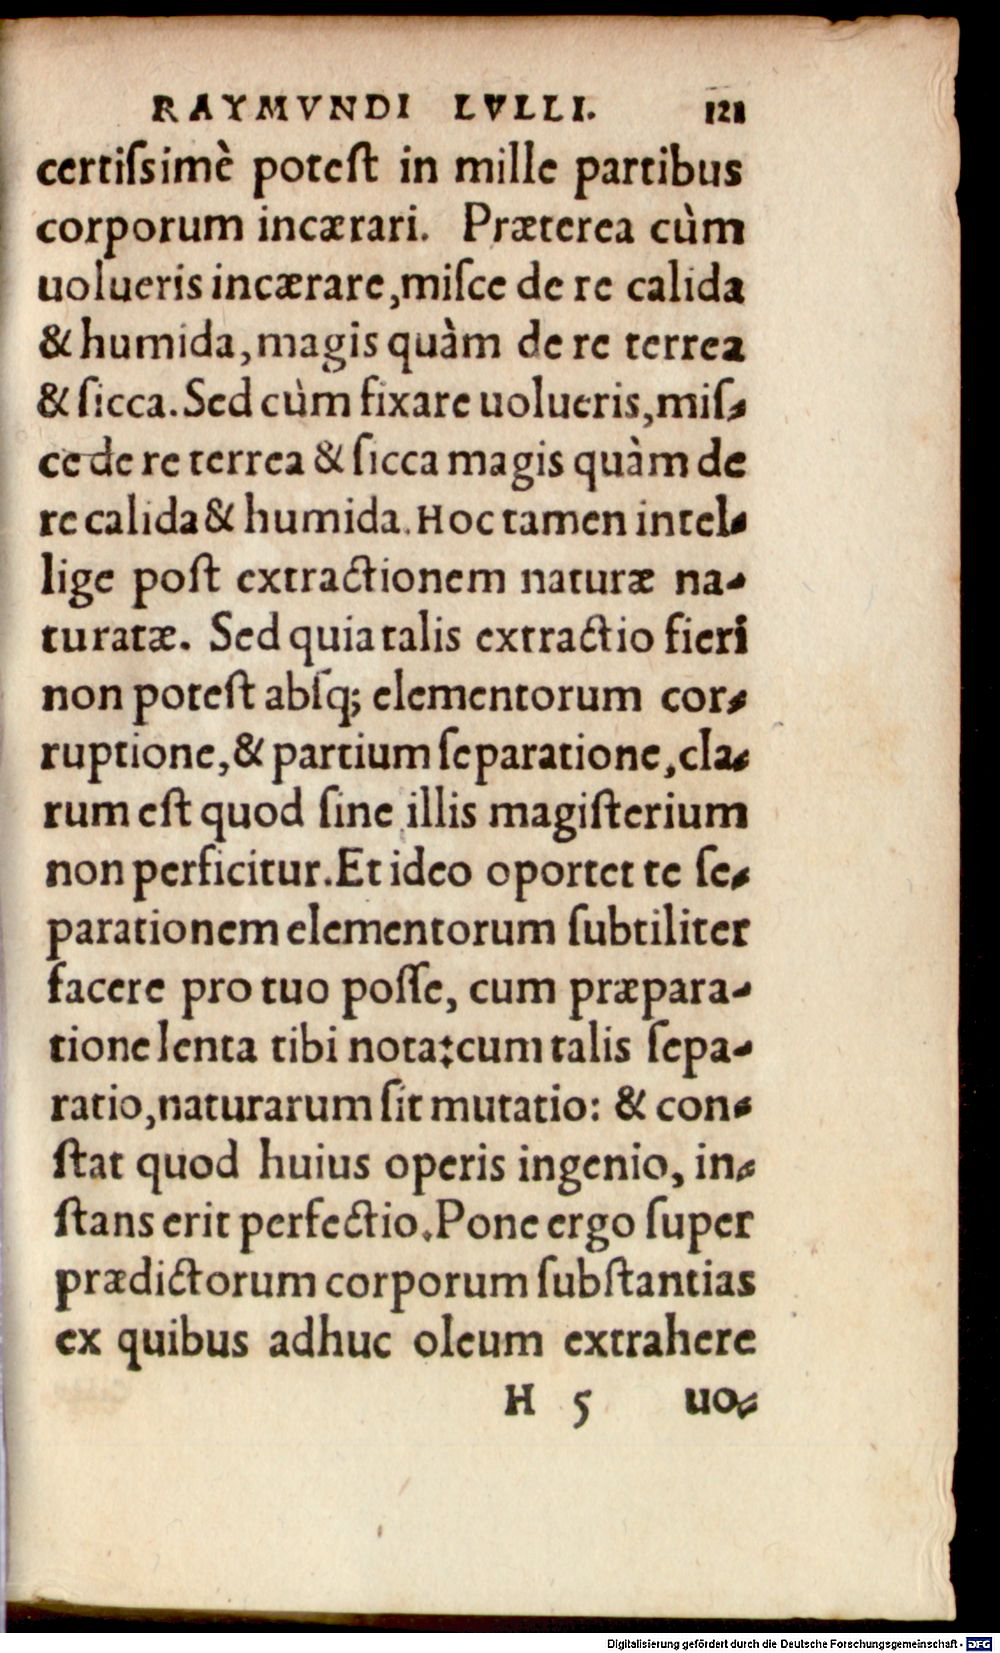 RAYMVNDI LVLLI. 121
certiſsimè poteſt in mille partibus
corporum incærari. Præterea cùm
uolueris incærare, miſce de re calida
& humida, magis quàm de re terrea
& ſicca. Sed cùm fixare uolueris, miſ-
ce de re terrea & ſicca magis quàm de
re calida & humida. Hoc tamen intel-
lige poſt extractionem naturæ na-
turatæ. Sed quia talis extractio fieri
non poteſt abſq; elementorum cor-
ruptione, & partium ſeparatione, cla-
rum eſt quod ſine illis magiſterium
non perficitur. Et ideo oportet te ſe-
parationem elementorum ſubtiliter
facere pro tuo poſſe, cum præpara-
tione lenta tibi nota: cum talis ſepa-
ratio, naturarum ſit mutatio: & con-
ſtat quod huius operis ingenio, in-
ſtans erit perfectio. Pone ergo ſuper
prædictorum corporum ſubſtantias
ex quibus adhuc oleum extrahere
H 5 uo-
Digitalisierung gefördert durch die Deutsche Forschungsgemeinschaft - DFG